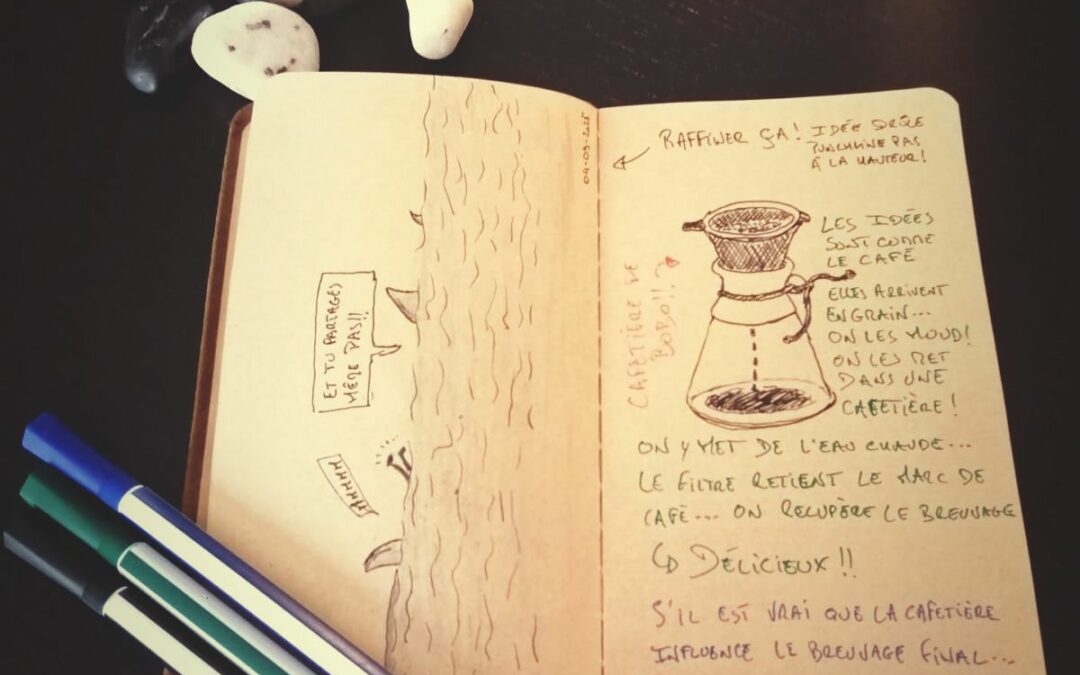 ET TU PARTAGES
MÊME PAS!!
AHHHHH
04-09-2025
RAFFINER ÇA! IDÉE DRÔLE
PUNCHLINE PAS
À LA HAUTEUR!
CAFETIÈRE DE
BOBO!!
LES IDÉES
SONT COMME
LE CAFÉ
ELLES ARRIVENT
EN GRAIN...
ON LES MOUD!
ON LES MET
DANS UNE
CAFETIÈRE!
ON Y MET DE L'EAU CHAUDE...
LE FILTRE RETIENT LE MARC DE
CAFÉ... ON RECUPÈRE LE BREUVAGE
DÉLICIEUX!!
S'IL EST VRAI QUE LA CAFETIÈRE
INFLUENCE LE BREUVAGE FINAL...